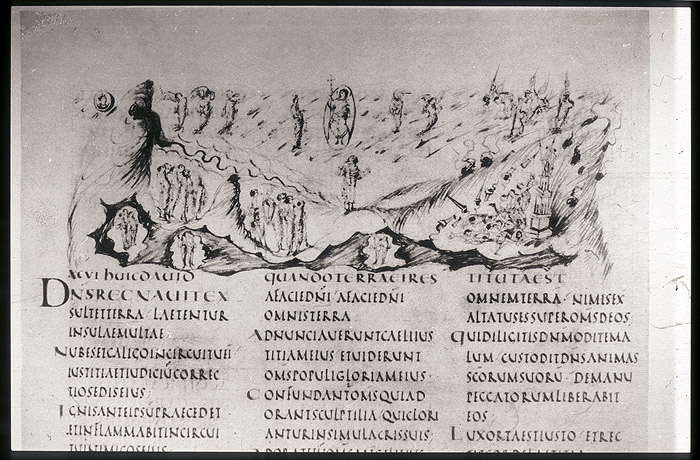 XCVI HUIC DAUID
DNS REGNAUIT EX
SULTET TERRA LAETENTUR
INSULAE MULTAE
NUBES ET CALIGO IN CIRCUITU EI
IUSTITIA ET IUDICIU CORREC
TIO SEDIS EIUS
IGNIS ANTE IPSU PRAECEDET
ET INFLAMMABIT IN CIRCUI
QUANDO TERRA EI RES
A FACIE DNI A FACIE DNI
OMNIS TERRA
ADNUNCIAUERUNT CAELI IUS
TITIAM EIUS ET UIDERUNT
OMS POPULI GLORIAM EIUS
CONFUNDANT OMS QUI AD
ORANT SCULPTILIA QUI GLORI
ANTUR IN SIMULACRIS SUIS
TITUTA EST
OMNEM TERRA NIMIS EX
ALTATUS ES SUPER OMS DEOS
QUI DILIGITIS DNM ODITE MA
LUM CUSTODIT DNS ANIMAS
SCORUM SUORU DE MANU
PECCATORUM LIBERABIT
EOS
LUX ORTA EST IUSTO ET REC